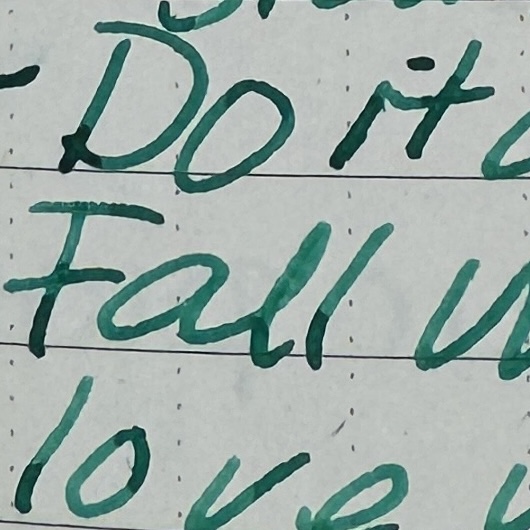 - Do it
Fall
love